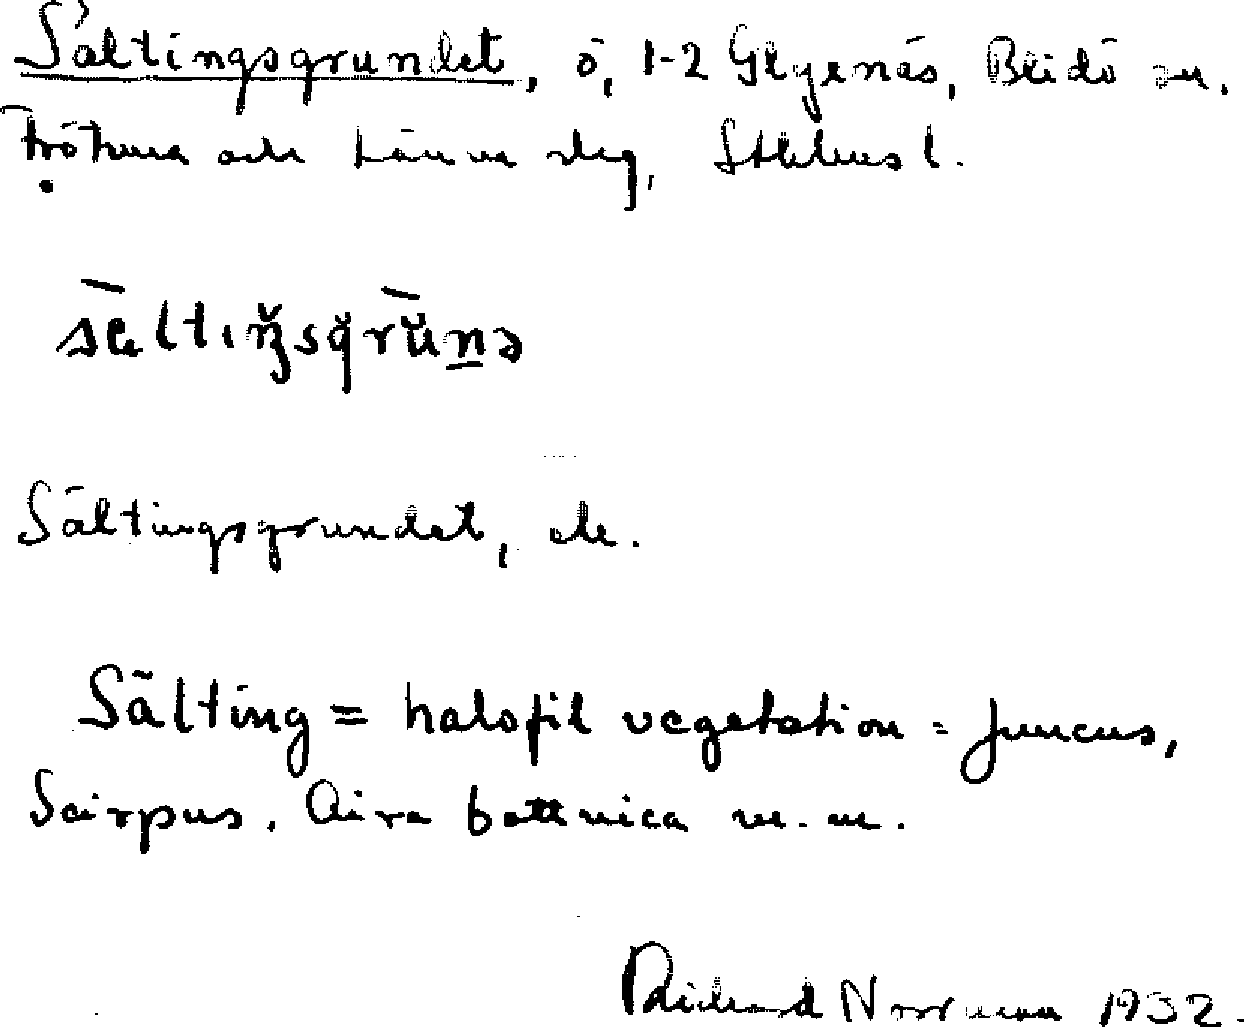 Sältingsgrundet, ö, 1-2 Glyxnäs, Blidö sn.
Frötuna och Länna slg, Sthlms l.
Sältingsgrundet, ds.
Sälting = halofil vegetation = Juncus,
Scirpus, Aira bottnica m. m.
Richard Norrman 1932.